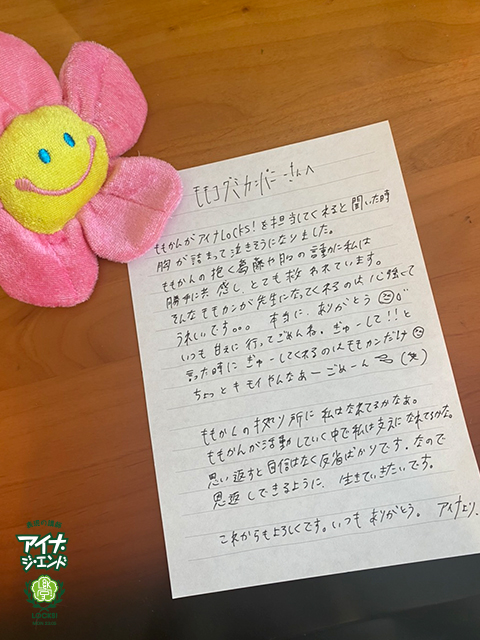 モモコグミカンパニーさんへ
ももかんがアイナLOCKS!を担当してくれると聞いた時
胸が詰まって泣きそうになりました。
ももかんの抱く葛藤や日々の言動に私は
勝手に共感し、とても救われています。
そんなももカンが先生になってくれるのは心強くて
うれしいです。。。本当に、ありがとう
いつも甘えに行ってごめんね。ぎゅーして!!と
言った時にぎゅーしてくれるのはももかんだけ
ちょっとキモイやんなあーごめーん (笑)
ももかんの拠り所に私はなれてるかなあ。
ももかんが活動していく中で私は支えになれてるかな。
思い返すと自信はなく反省ばかりです。なので
恩返しできるように、生きていきたいです。
これからもよろしくです。いつもありがとう。 アイナより、
アイナ・
ジ・エンド
LOCKS!